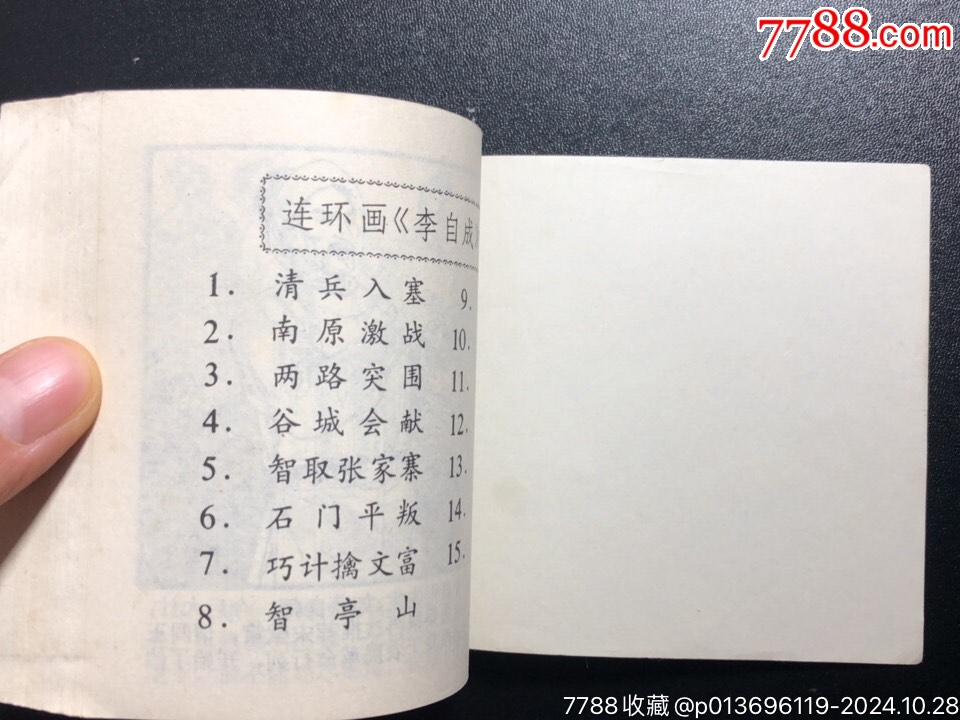 7788.com
连环画《李自成》
1. 清兵入塞
2. 南原激战
3. 两路突围
4. 谷城会献
5. 智取张家寨
6. 石门平叛
7. 巧计擒文富
8. 智亭山
9.
10.
11.
12.
13.
14.
15.
7788收藏@p013696119-2024.10.28